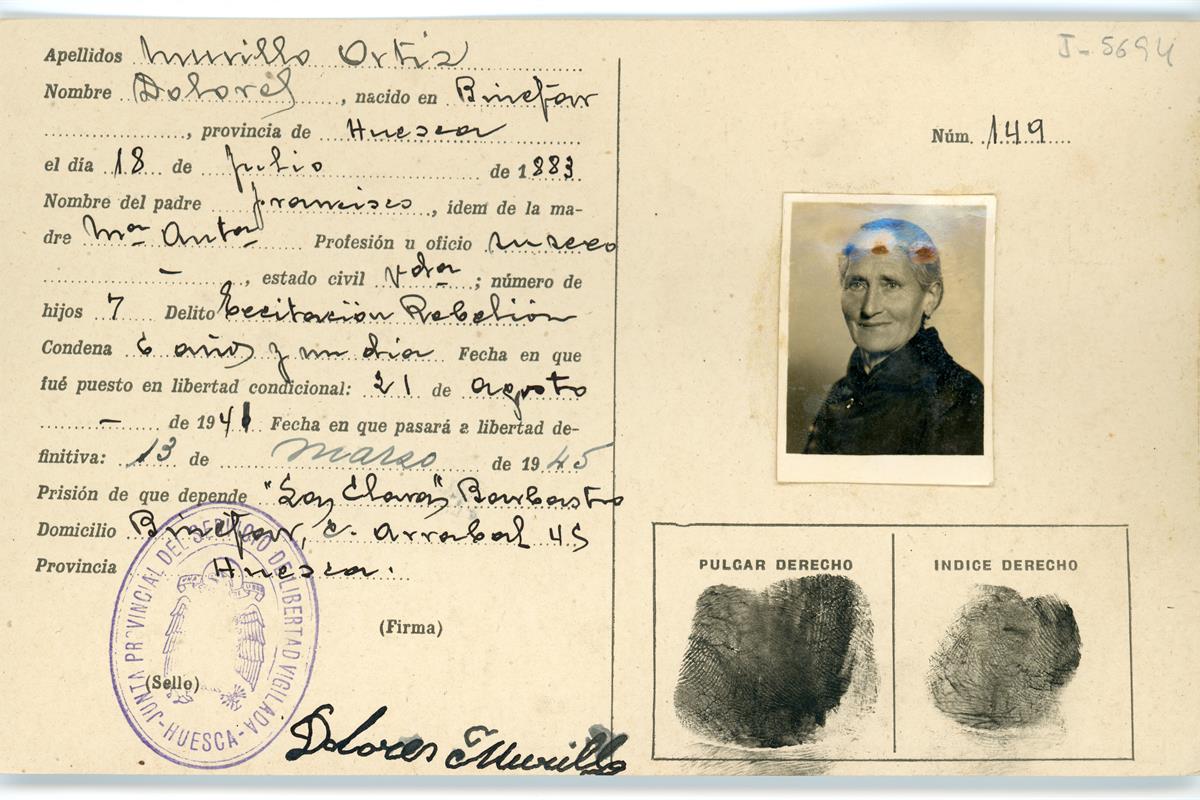 Apellidos Murillo Ortiz
Nombre Dolores, nacido en Binefar
, provincia de Huesca
el día 18 de Julio de 1883
Nombre del padre Francisco, idem de la ma-
dre Mª Antª Profesión u oficio su sexo
—, estado civil Vda; número de
hijos 7 Delito Excitación Rebelión
Condena 6 años y un dia Fecha en que
fué puesto en libertad condicional: 21 de agosto
— de 1941 Fecha en que pasará a libertad de-
finitiva: 13 de marzo de 1945
Prisión de que depende "Las Claras" Barbastro
Domicilio Binefar, c. Arrabal 45
Provincia Huesca.
(Firma)
(Sello)
JUNTA PROVINCIAL DEL SERVICIO DE LIBERTAD VIGILADA -HUESCA-
Dolores Murillo
J-5694
Núm. 149
PULGAR DERECHO
INDICE DERECHO